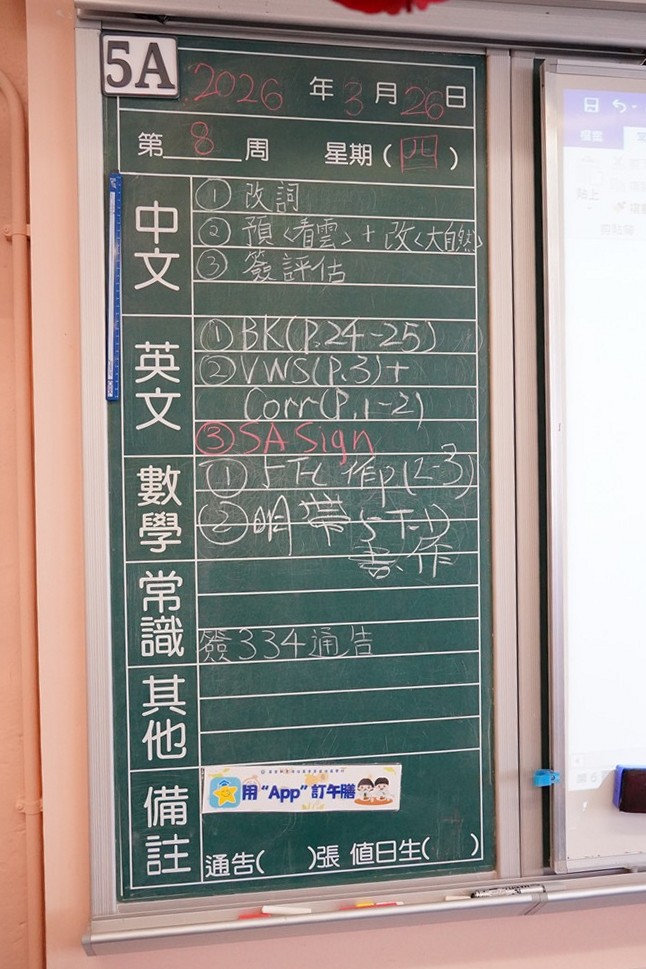 5A 2026年3月26日
第8周 星期(四)
中文
① 改詞
② 預<看雲>+改<大自然>
③ 簽評估
英文
① BK(P.24-25)
② VWS(P.3)+
Corr(P.1-2)
③ SA Sign
數學
① 5下C 作p(2-3)
② 明帶5下-1)
書、作
常識
簽334通告
其他
備註
用"App"訂午膳
通告( )張 值日生( )
檔案
貼上